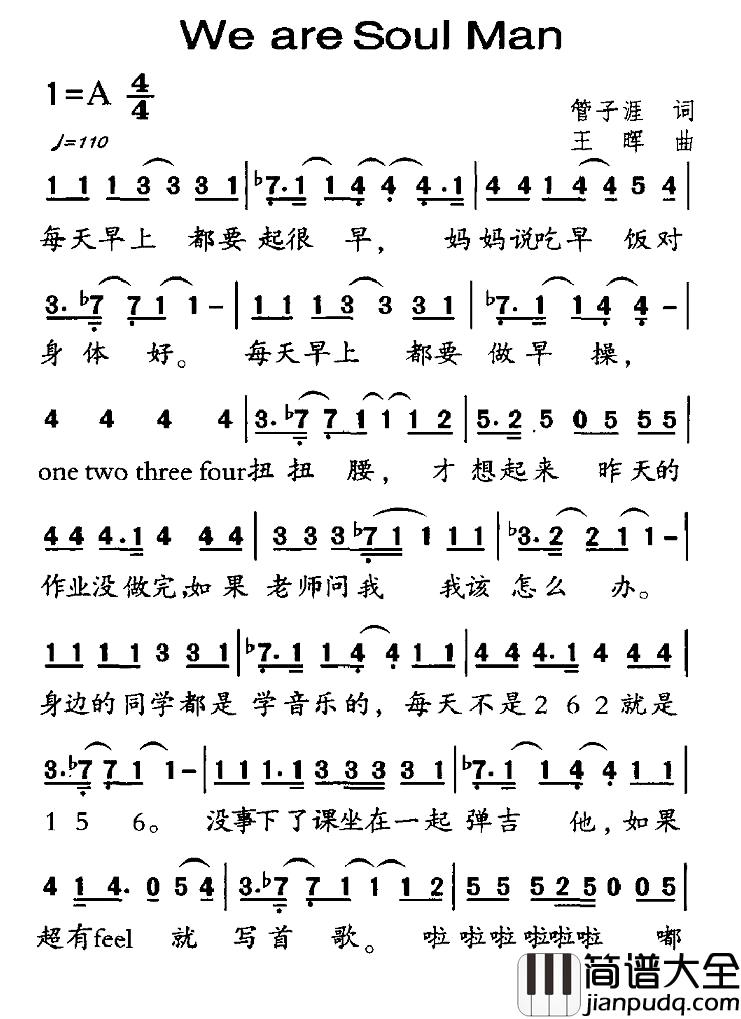 We are Soul Man
1=A 4/4
管子涯 词
♩=110
王 晖 曲
1 1 1 3 3 3 3 1 | ♭7. 1 1 4 4 4. 1 | 4 4 1 4 4 5 4 |
每天早上 都要起很 早， 妈妈说吃早 饭对
3. ♭7 7 1 1 - | 1 1 1 3 3 3 1 | ♭7. 1 1 4 4 - |
身体 好。 每天早上 都要 做早 操，
4 4 4 4 | 3. ♭7 7 1 1 1 2 | 5. 2 5 0 5 5 5 |
one two three four扭扭 腰， 才想起来 昨天的
4 4 4. 1 4 4 4 | 3 3 3 ♭7 1 1 1 1 | ♭3. 2 2 1 1 - |
作业没做完，如果 老师问我 我该 怎么 办。
1 1 1 1 3 3 3 1 | ♭7. 1 1 4 4 1 1 | 4 4 4. 1 4 4 4 |
身边的同学都是 学音乐的， 每天不是2 6 2就是
3. ♭7 7 1 1 - | 1 1 1. 1 3 3 3 3 1 | ♭7. 1 1 4 4 1 1 |
1 5 6。 没事下了课坐在一起 弹吉 他，如果
4 1 4. 0 5 4 | 3. ♭7 7 1 1 1 2 | 5 5 5 2 5 0 0 5 |
超有feel 就 写首 歌。 啦 啦啦啦啦啦 嘟
简谱大全
jianpudq.com